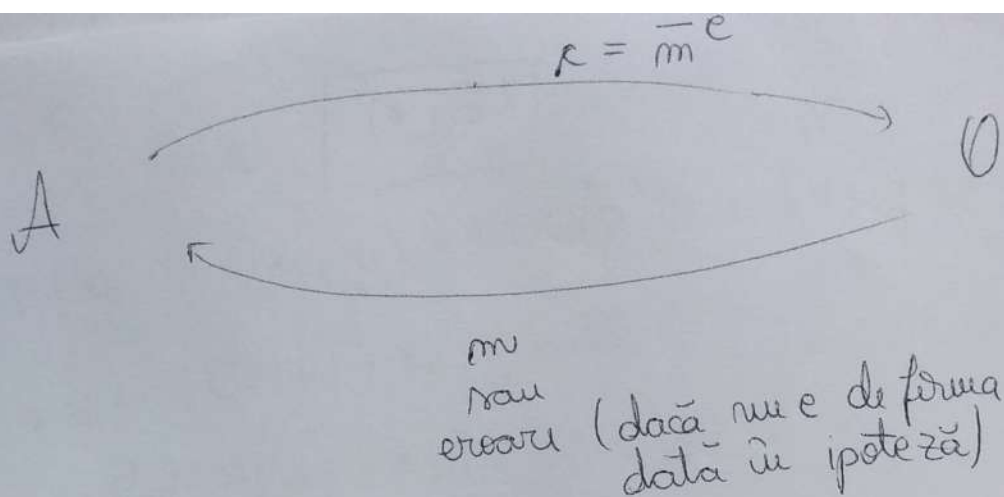 c = m̅^e
A
O
m
sau
eroare (dacă nu e de forma
dată în ipoteză)